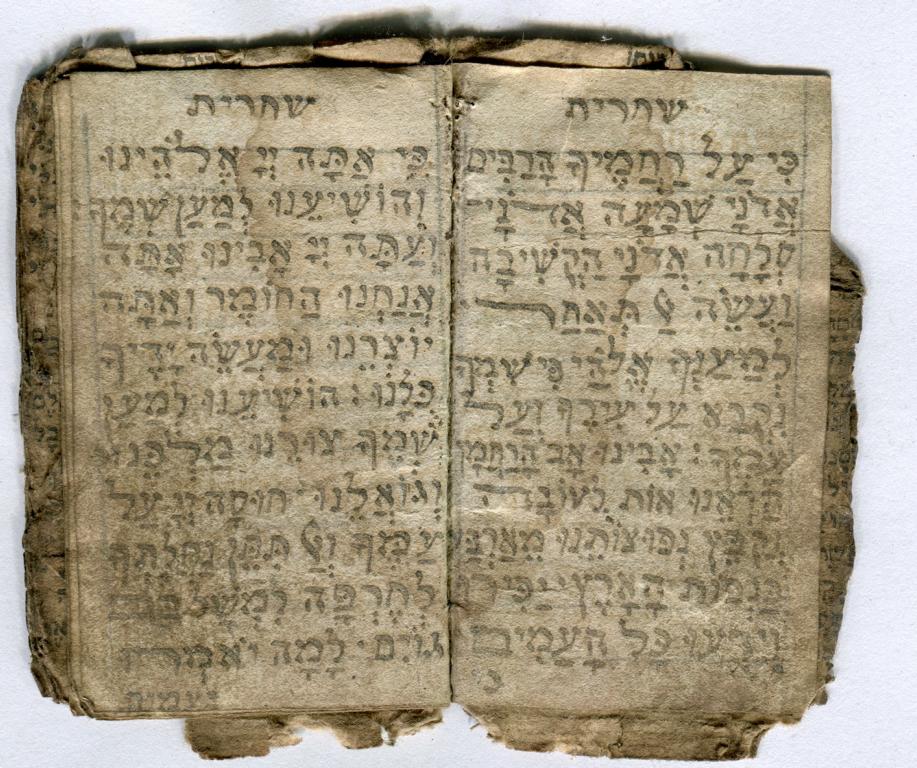 שחרית
כִּי עַל רַחֲמֶיךָ הָרַבִּים
אֲדֹנָי שְׁמָעָה אֲדֹנָי
סְלָחָה אֲדֹנָי הַקְשִׁיבָה
וַעֲשֵׂה אַל תְּאַחַר
לְמַעֲנְךָ אֱלֹהַי כִּי שִׁמְךָ
נִקְרָא עַל עִירְךָ וְעַל
עַמֶּךָ : אָבִינוּ אָב הָרַחֲמָן
הַרְאֵנוּ אוֹת לְטוֹבָה
וְקַבֵּץ נְפוּצוֹתֵנוּ מֵאַרְבַּע
כַּנְפוֹת הָאָרֶץ יַכִּירוּ
וְיֵדְעוּ כָּל הָעַמִּים
כִּ
שחרית
כִּי אַתָּה יְיָ אֱלֹהֵינוּ
וְהוֹשִׁיעֵנוּ לְמַעַן שְׁמֶךָ
וְעַתָּה יְיָ אָבִינוּ אַתָּה
אֲנַחְנוּ הַחוֹמֶר וְאַתָּה
יוֹצְרֵנוּ וּמַעֲשֵׂה יָדְיךָ
כֻּלָּנוּ : הוֹשִׁיעֵנוּ לְמַעַן
שְׁמֶךָ צוּרֵנוּ מַלְכֵּנוּ
וְגוֹאֲלֵנוּ חוּסָה יְיָ עַל
עַמֶּךָ וְאַל תִּתֵּן נַחֲלָתְךָ
לְחֶרְפָּה לִמְשָׁל בָּם
גּוֹיִם : לָמָה יֹאמְרוּ
בָעַמִּים